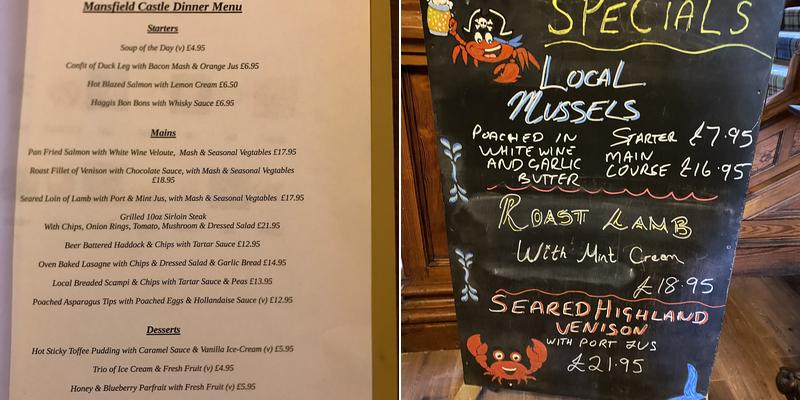 Mansfield Castle Dinner Menu
Starters
Soup of the Day (v) £4.95
Confit of Duck Leg with Bacon Mash & Orange Jus £6.95
Hot Blazed Salmon with Lemon Cream £6.50
Haggis Bon Bons with Whisky Sauce £6.95
Mains
Pan Fried Salmon with White Wine Veloute, Mash & Seasonal Vegtables £17.95
Roast Fillet of Venison with Chocolate Sauce, with Mash & Seasonal Vegtables
£18.95
Seared Loin of Lamb with Port & Mint Jus, with Mash & Seasonal Vegtables £17.95
Grilled 10oz Sirloin Steak
With Chips, Onion Rings, Tomato, Mushroom & Dressed Salad £21.95
Beer Battered Haddock & Chips with Tartar Sauce £12.95
Oven Baked Lasagne with Chips & Dressed Salad & Garlic Bread £14.95
Local Breaded Scampi & Chips with Tartar Sauce & Peas £13.95
Poached Asparagus Tips with Poached Eggs & Hollandaise Sauce (v) £12.95
Desserts
Hot Sticky Toffee Pudding with Caramel Sauce & Vanilla Ice-Cream (v) £5.95
Trio of Ice Cream & Fresh Fruit (v) £4.95
Honey & Blueberry Parfrait with Fresh Fruit (v) £5.95
SPECIALS
LOCAL
MUSSELS
POACHED IN
WHITE WINE
AND GARLIC
BUTTER
STARTER £7.95
MAIN
COURSE £16.95
ROAST LAMB
With Mint Cream
£18.95
SEARED HIGHLAND
VENISON
WITH PORT JUS
£21.95